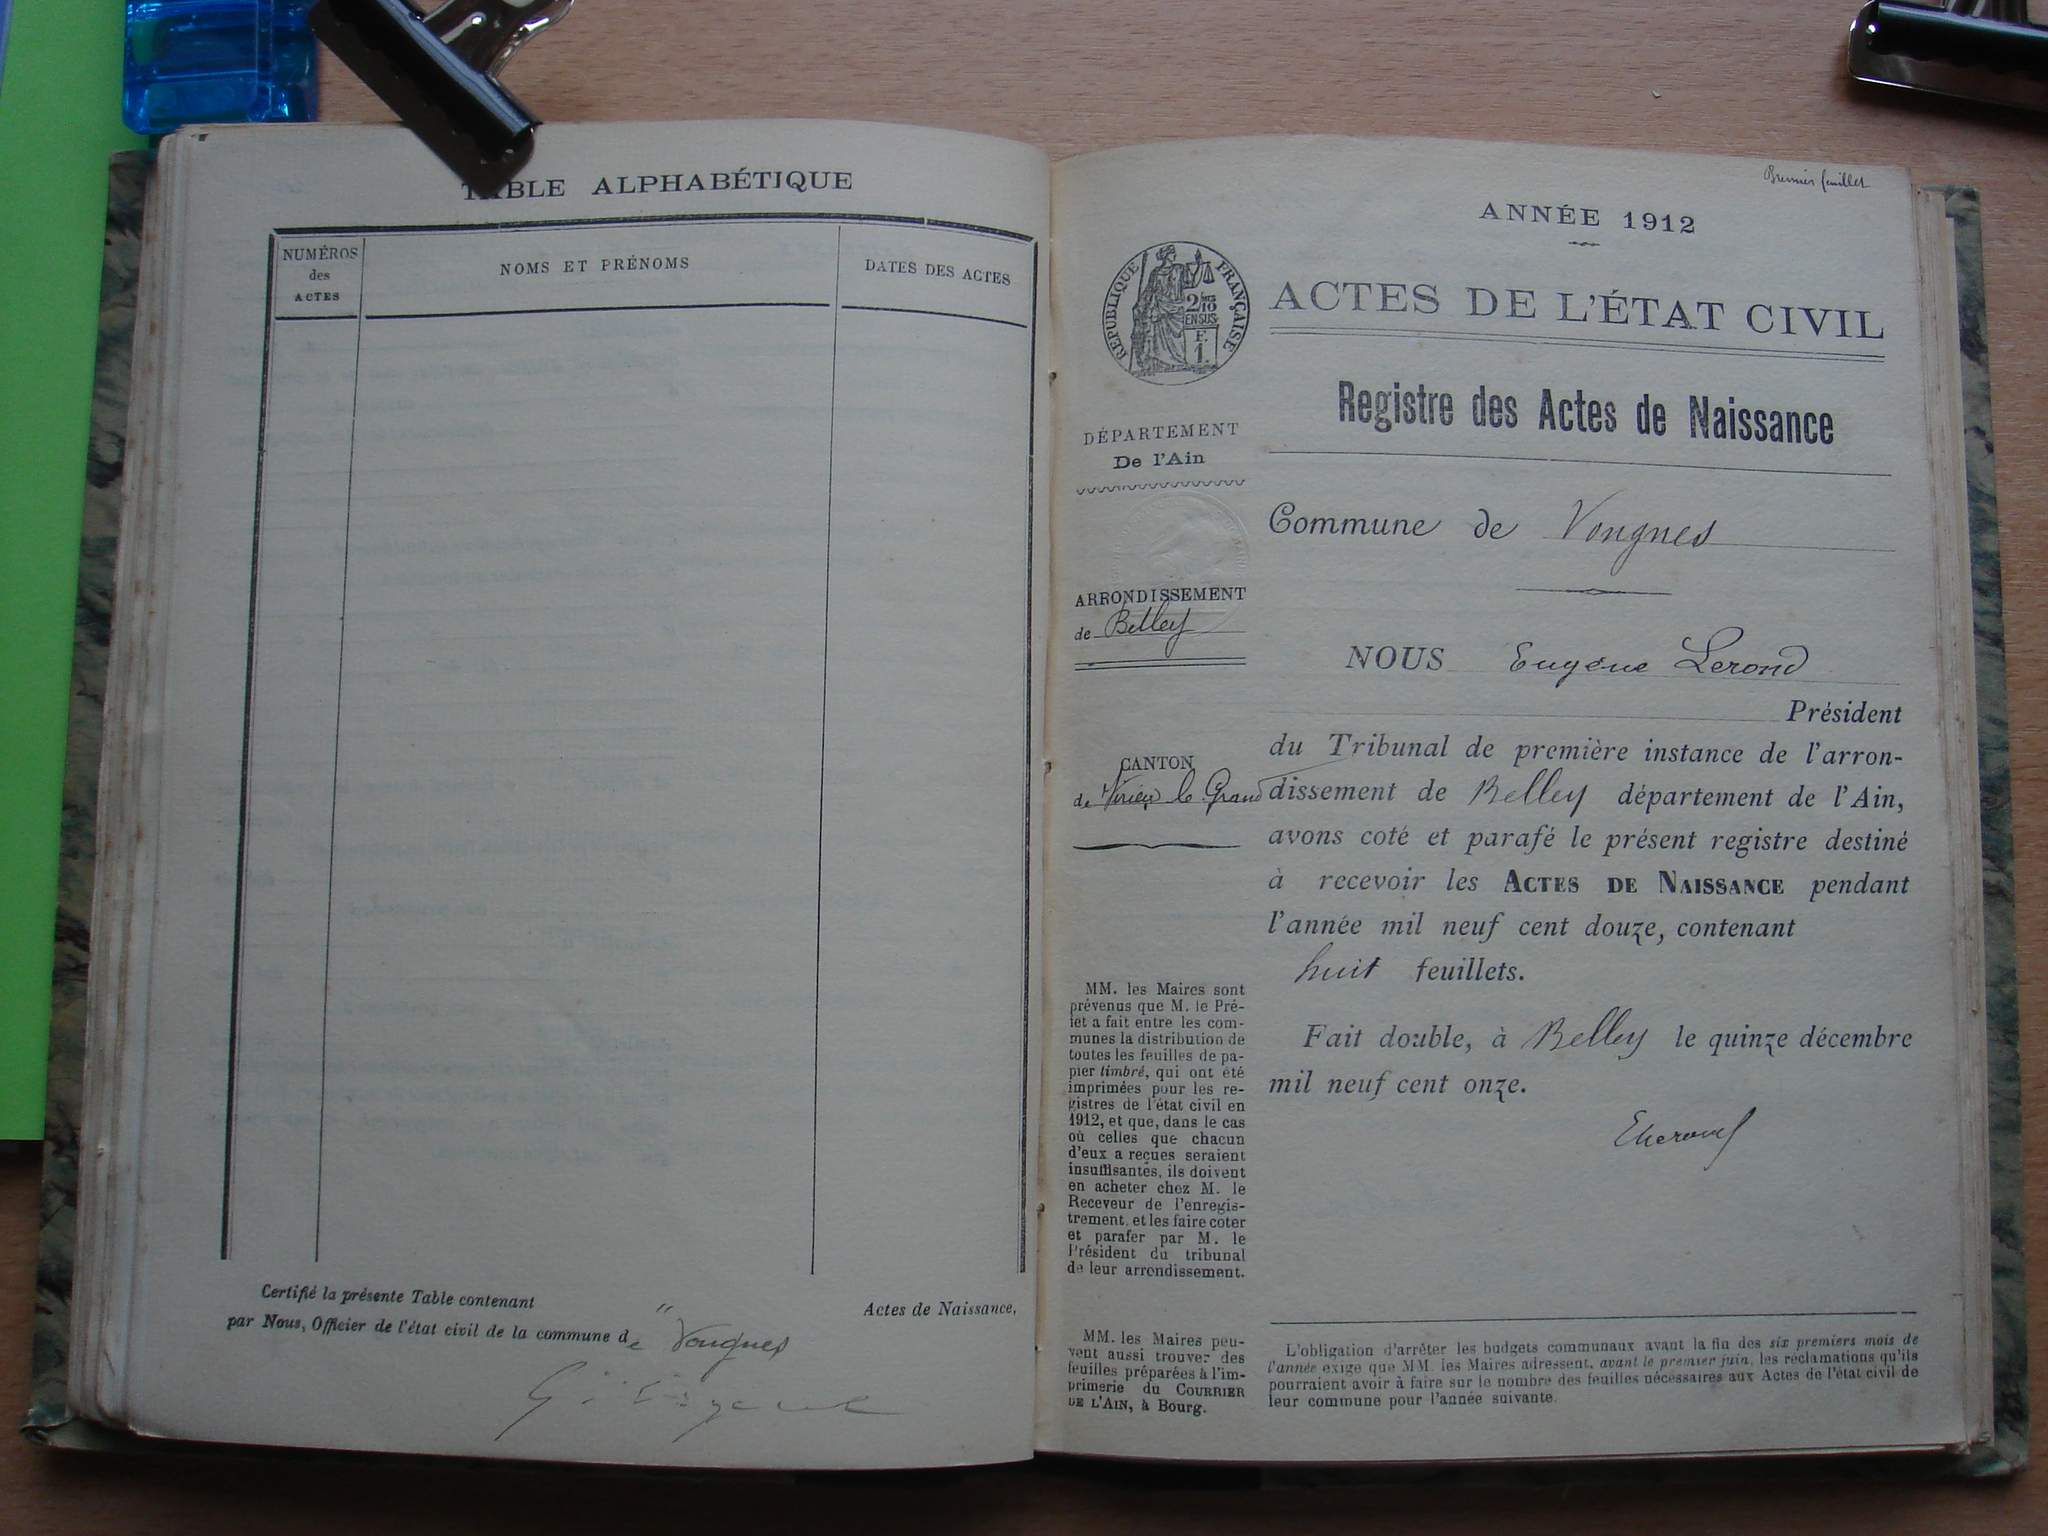 TABLE ALPHABÉTIQUE
NUMÉROS
des
ACTES
NOMS ET PRÉNOMS
DATES DES ACTES
Certifié la présente Table contenant " Actes de Naissance,
par Nous, Officier de l'état civil de la commune de Vongnes
Premier feuillet
ANNÉE 1912
RÉPUBLIQUE FRANÇAISE
2/10
EN SUS
F.
1.
ACTES DE L'ÉTAT CIVIL
Registre des Actes de Naissance
DÉPARTEMENT
De l'Ain
Commune de Vongnes
ARRONDISSEMENT
de Belley
NOUS Eugène Lerond
Président
du Tribunal de première instance de l'arron-
dissement de Belley département de l'Ain,
avons coté et parafé le présent registre destiné
à recevoir les ACTES DE NAISSANCE pendant
l'année mil neuf cent douze, contenant
huit feuillets.
Fait double, à Belley le quinze décembre
mil neuf cent onze.
CANTON
de Virieu le Grand
MM. les Maires sont
prévenus que M. le Pré-
fet a fait entre les com-
munes la distribution de
toutes les feuilles de pa-
pier timbré, qui ont été
imprimées pour les re-
gistres de l'état civil en
1912, et que, dans le cas
où celles que chacun
d'eux a reçues seraient
insuffisantes, ils doivent
en acheter chez M. le
Receveur de l'enregis-
trement, et les faire coter
et parafer par M. le
Président du tribunal
de leur arrondissement.
MM. les Maires peu-
vent aussi trouver des
feuilles préparées à l'im-
primerie du COURRIER
DE L'AIN, à Bourg.
L'obligation d'arrêter les budgets communaux avant la fin des six premiers mois de
l'année exige que MM. les Maires adressent, avant le premier juin, les réclamations qu'ils
pourraient avoir à faire sur le nombre des feuilles nécessaires aux Actes de l'état civil de
leur commune pour l'année suivante.